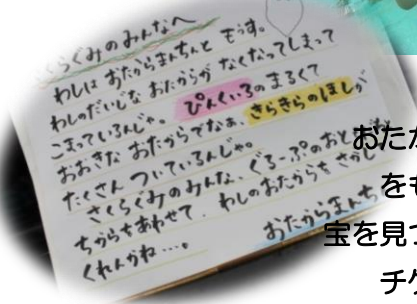 くらぐみのみんなへ
わしは おたからまんちんと もうす。
わしのだいじな おたからが なくなってしまって
こまっているんじゃ。ぴんくいろの まるくて
おおきな おたからでなぁ、きらきらのほしが
たくさん ついているんじゃ。
さくらぐみのみんな、ぐるーぷのおと
ちからをあわせて、わしのおたからを さがし
くれんかね…。
おたからまんち
おたか
をも
宝を見つ
チケ